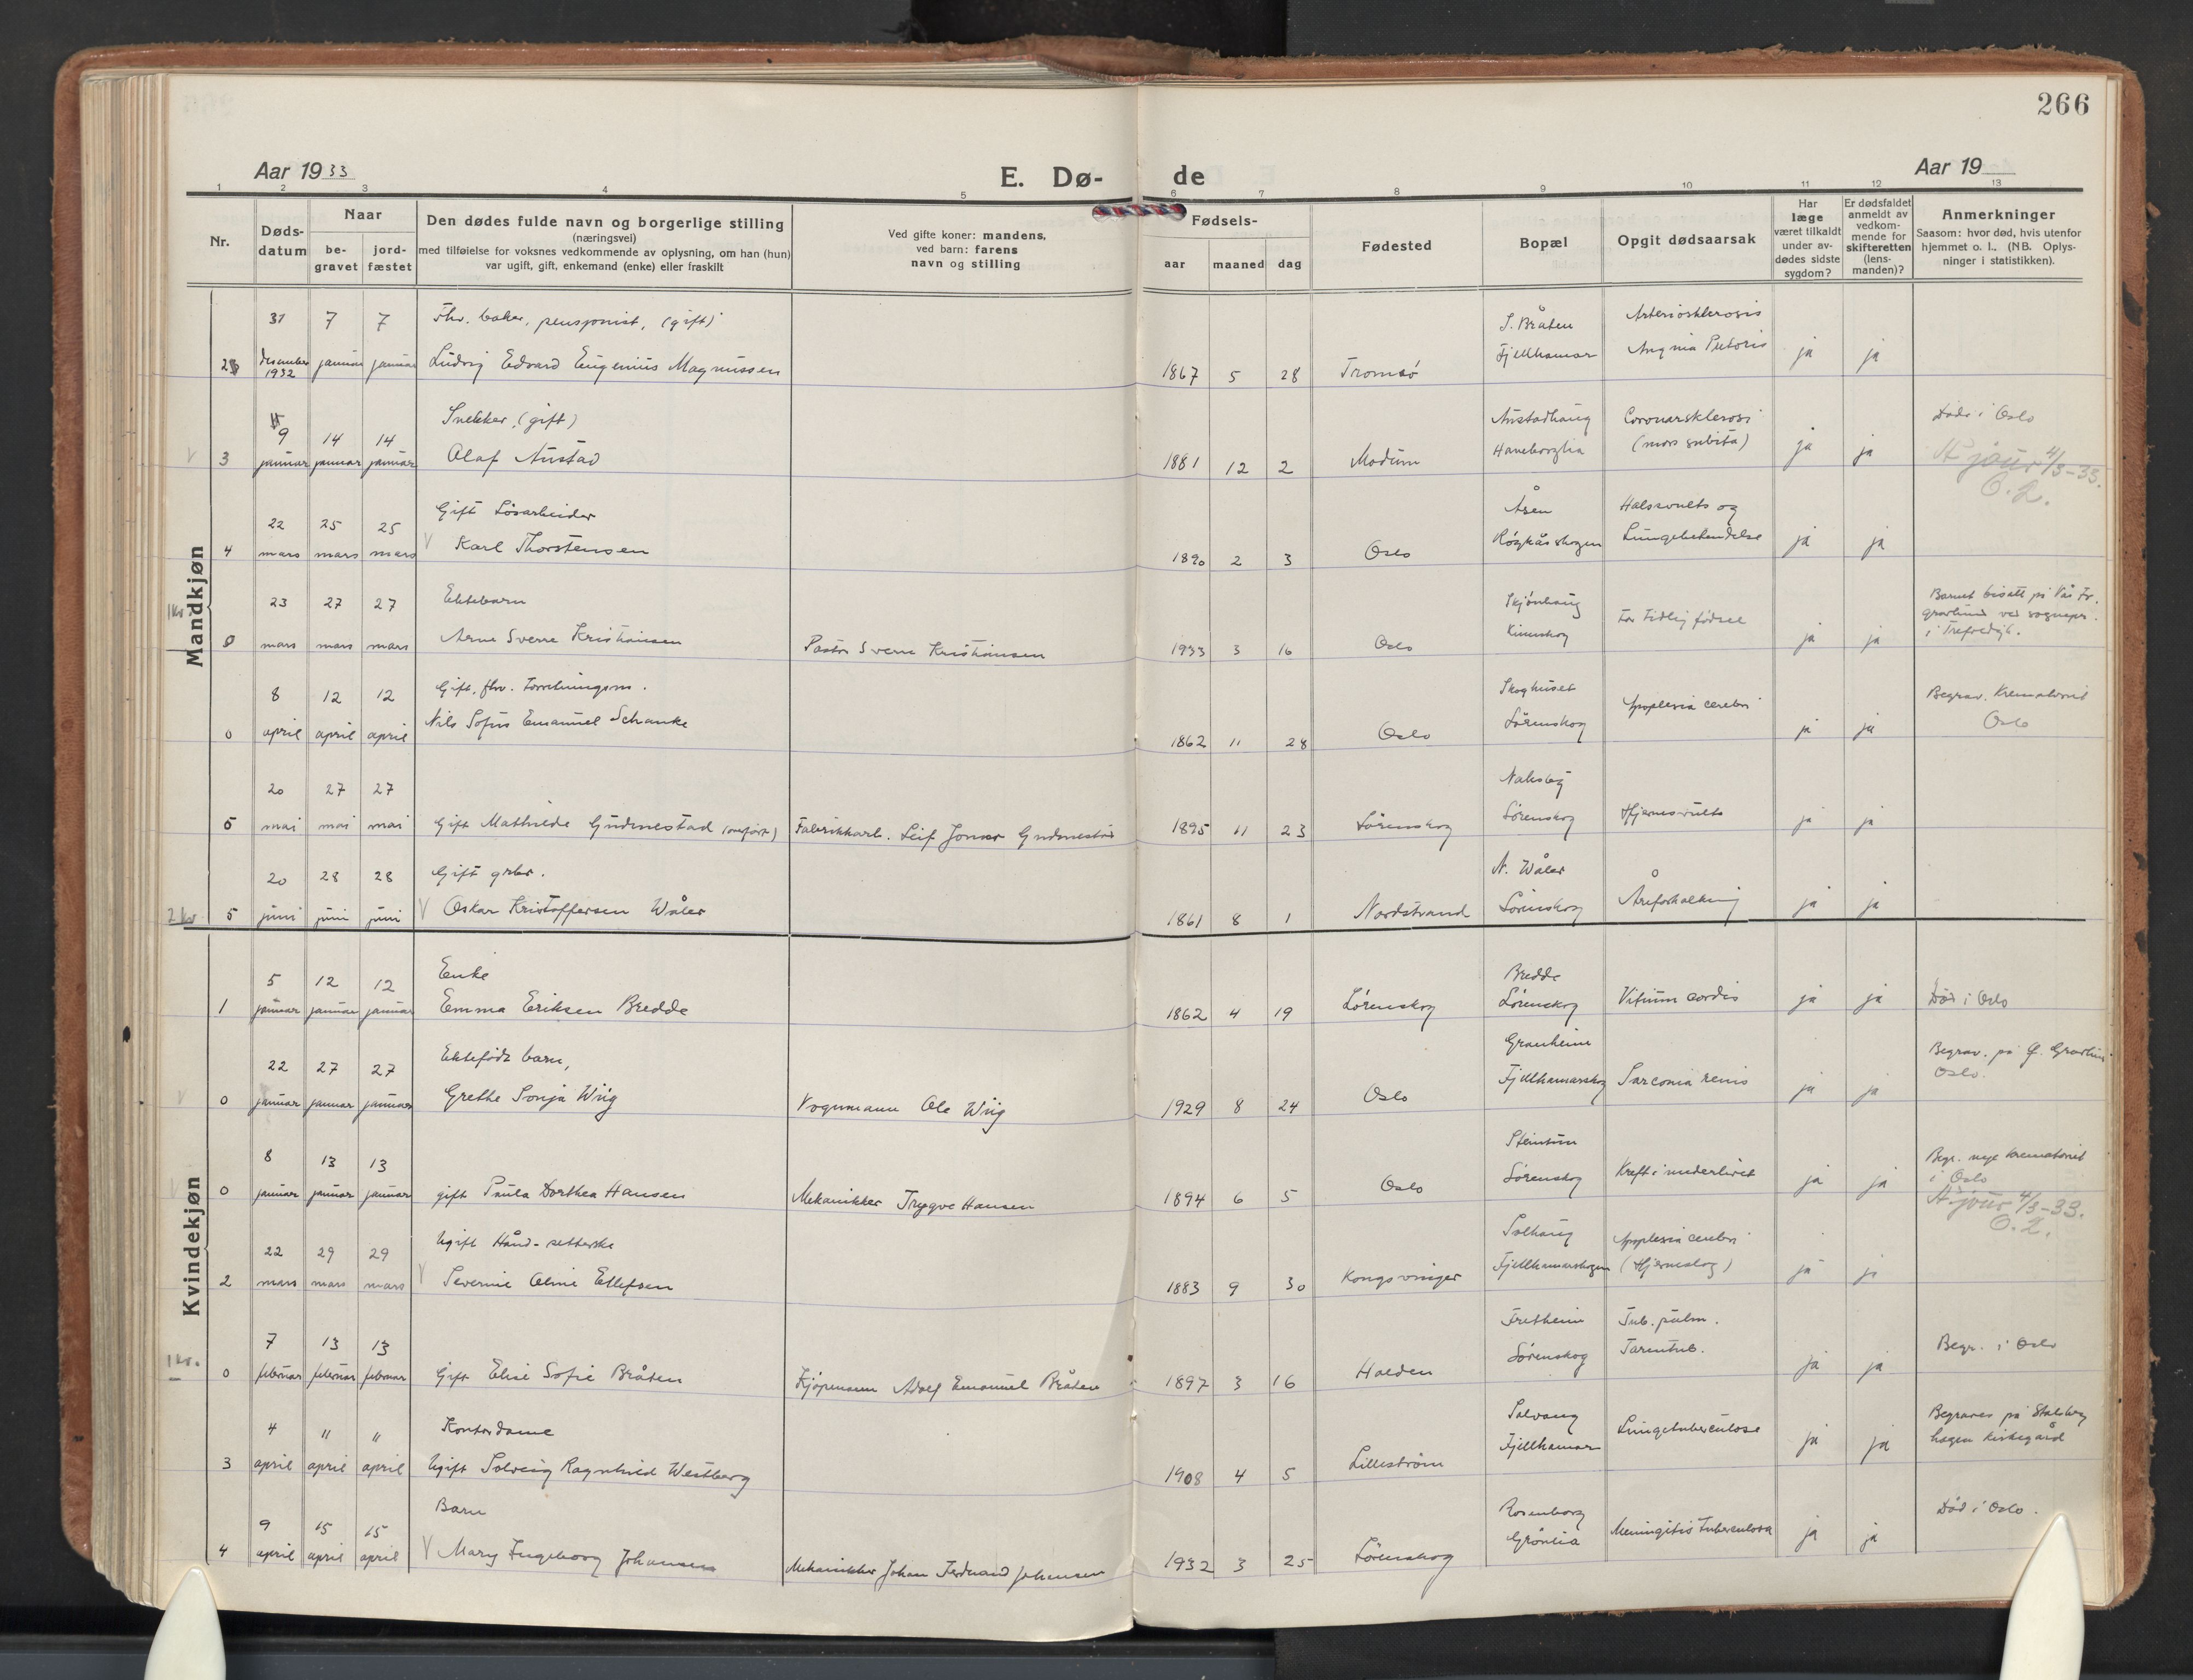 266
Aar 1933
E. Dø-
de
Aar 19
1 2 3 4 5 6 7 8 9 10 11 12 13
Nr.
Døds-
datum
Naar
be-
gravet
jord-
fæstet
Den dødes fulde navn og borgerlige stilling
(næringsvei)
med tilføielse for voksnes vedkommende av oplysning, om han (hun)
var ugift, gift, enkemand (enke) eller fraskilt
Ved gifte koner: mandens,
ved barn: farens
navn og stilling
Fødsels-
aar
maaned
dag
Fødested
Bopæl
Opgit dødsaarsak
Har
læge
været tilkaldt
under av-
dødes sidste
sygdom?
Er dødsfaldet
anmeldt av
vedkom-
mende for
skifteretten
(lens-
manden)?
Anmerkninger
Saasom: hvor død, hvis utenfor
hjemmet o. l., (NB. Oplys-
ninger i statistikken).
Mandkjøn
31 7 7 Fhv. baker, pensjonist, (gift) S. Bråten Arteriosklerosis
desember 1932 januar januar Ludvig Edvard Eugenius Magnussen 1867 5 28 Tromsø Fjellhamar Angina ja ja
9 14 14 Snekker (gift) Austadhaug Coronarsklerosi Døde i Oslo
3 januar januar januar Olaf Austad 1881 12 2 Modum Haneborglia (mors subita) ja ja A jour 4/3-33.
O. L.
22 25 25 Gift Løsarbeider Åsen Halsvulst og
4 mars mars mars V Karl Thorstensen 1890 2 3 Oslo Røykåsskogen Lungebetendelse ja ja
1 kr.
23 27 27 Ektebarn Skjønhaug For tidlig fødsel Barnet bisatt på Vår Fr.
gravlund ved sognepr.
0 mars mars mars Arne Sverre Kristiansen Pastor Sverre Kristiansen 1933 3 16 Oslo Kinnskog ja ja i
8 12 12 Gift, fhv. Forretningsm. Skoghuset Apoplexia cerebri Begrav. Krematoriet
0 april april april Nils Sofus Emanuel Schanke 1862 11 28 Oslo Lørenskog ja ja Oslo
20 27 27
5 mai mai mai Gift Mathilde Gudmestad (overført) Fabrikkarb. Leif Jonas Gudmestad 1895 11 23 Lørenskog Lørenskog Hjernesvulst ja ja
20 28 28 Gift grbr. N. Wåler
2 kr. 5 juni juni juni V Oskar Kristoffersen Wåler 1861 8 1 Nordstrand Lørenskog Åreforkalkning ja ja
Kvindekjøn
5 12 12 Enke Bredde
1 januar januar januar Emma Eriksen Bredde 1862 4 19 Lørenskog Lørenskog Vitium cordis ja ja Død i Oslo
22 27 27 Ektefødt barn, Granheim Begrav. på Ø. Gravlund
Oslo.
0 januar januar januar Grethe Sonja Wiig Vognmann Ole Wiig 1929 8 24 Oslo Fjellhamarskog Sarcoma renis ja ja
8 13 13 Steintun Begr. nye krematoriet
i Oslo
0 januar januar januar gift Paula Dorthea Hansen Mekanikker Trygve Hansen 1894 6 5 Oslo Lørenskog Kreft i underlivet ja ja A jour 4/3-33.
O. L.
22 29 29 Ugift Hånd-setterske Solhaug Apoplexia cerebri
2 mars mars mars V Severine Oline Ellefsen 1883 9 30 Kongsvinger Fjellhamarskogen (Hjerneslag) ja ja
1 kr.
7 13 13 Fretheim Tub. pulm.
0 februar februar februar Gift Elise Sofie Bråten Kjøpmann Adolf Emanuel Bråten 1897 3 16 Halden Lørenskog Tarmtub. ja ja Begr. i Oslo
4 " " Kontordame Solvang Begraves på Stalsberg
hagen kirkegård
3 april april april Ugift Solveig Ragnhild Westberg 1908 4 5 Lillestrøm Fjellhamar Lungetuberculose ja ja
9 15 15 Barn Rosenborg Død i Oslo.
4 april april april V Mary Ingeborg Johansen Mekanikker Johan Ferdinand Johansen 1932 3 25 Lørenskog Grønlia Meningitis tuberculosa ja ja